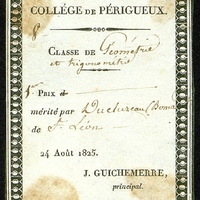 COLLÉGE DE PÉRIGUEUX.
8
CLASSE DE Géométrie
et trigonométrie
1er PRIX d
mérité par Ducluzeau (Bernard
de St. Léon
24 Août 1825.
J. GUICHEMERRE,
principal.